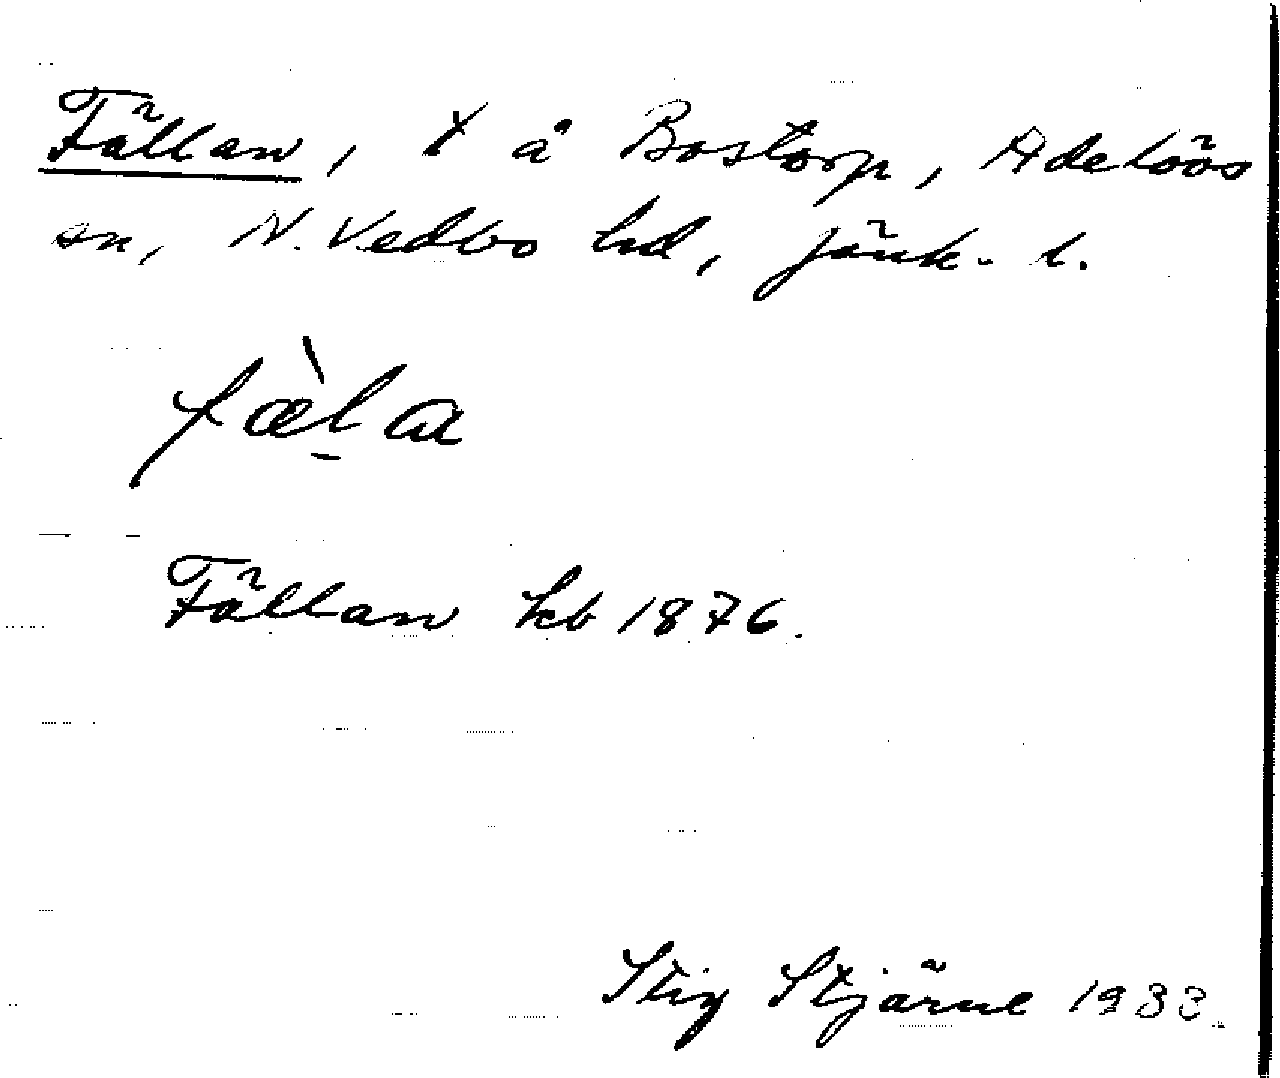 Fällan, x å Bostorp, Adelövs
sn, N. Vedbo hd, Jönk. l.
fæ̀l̠a
Fällan kb 1876.
Stig Stjärne 1933.